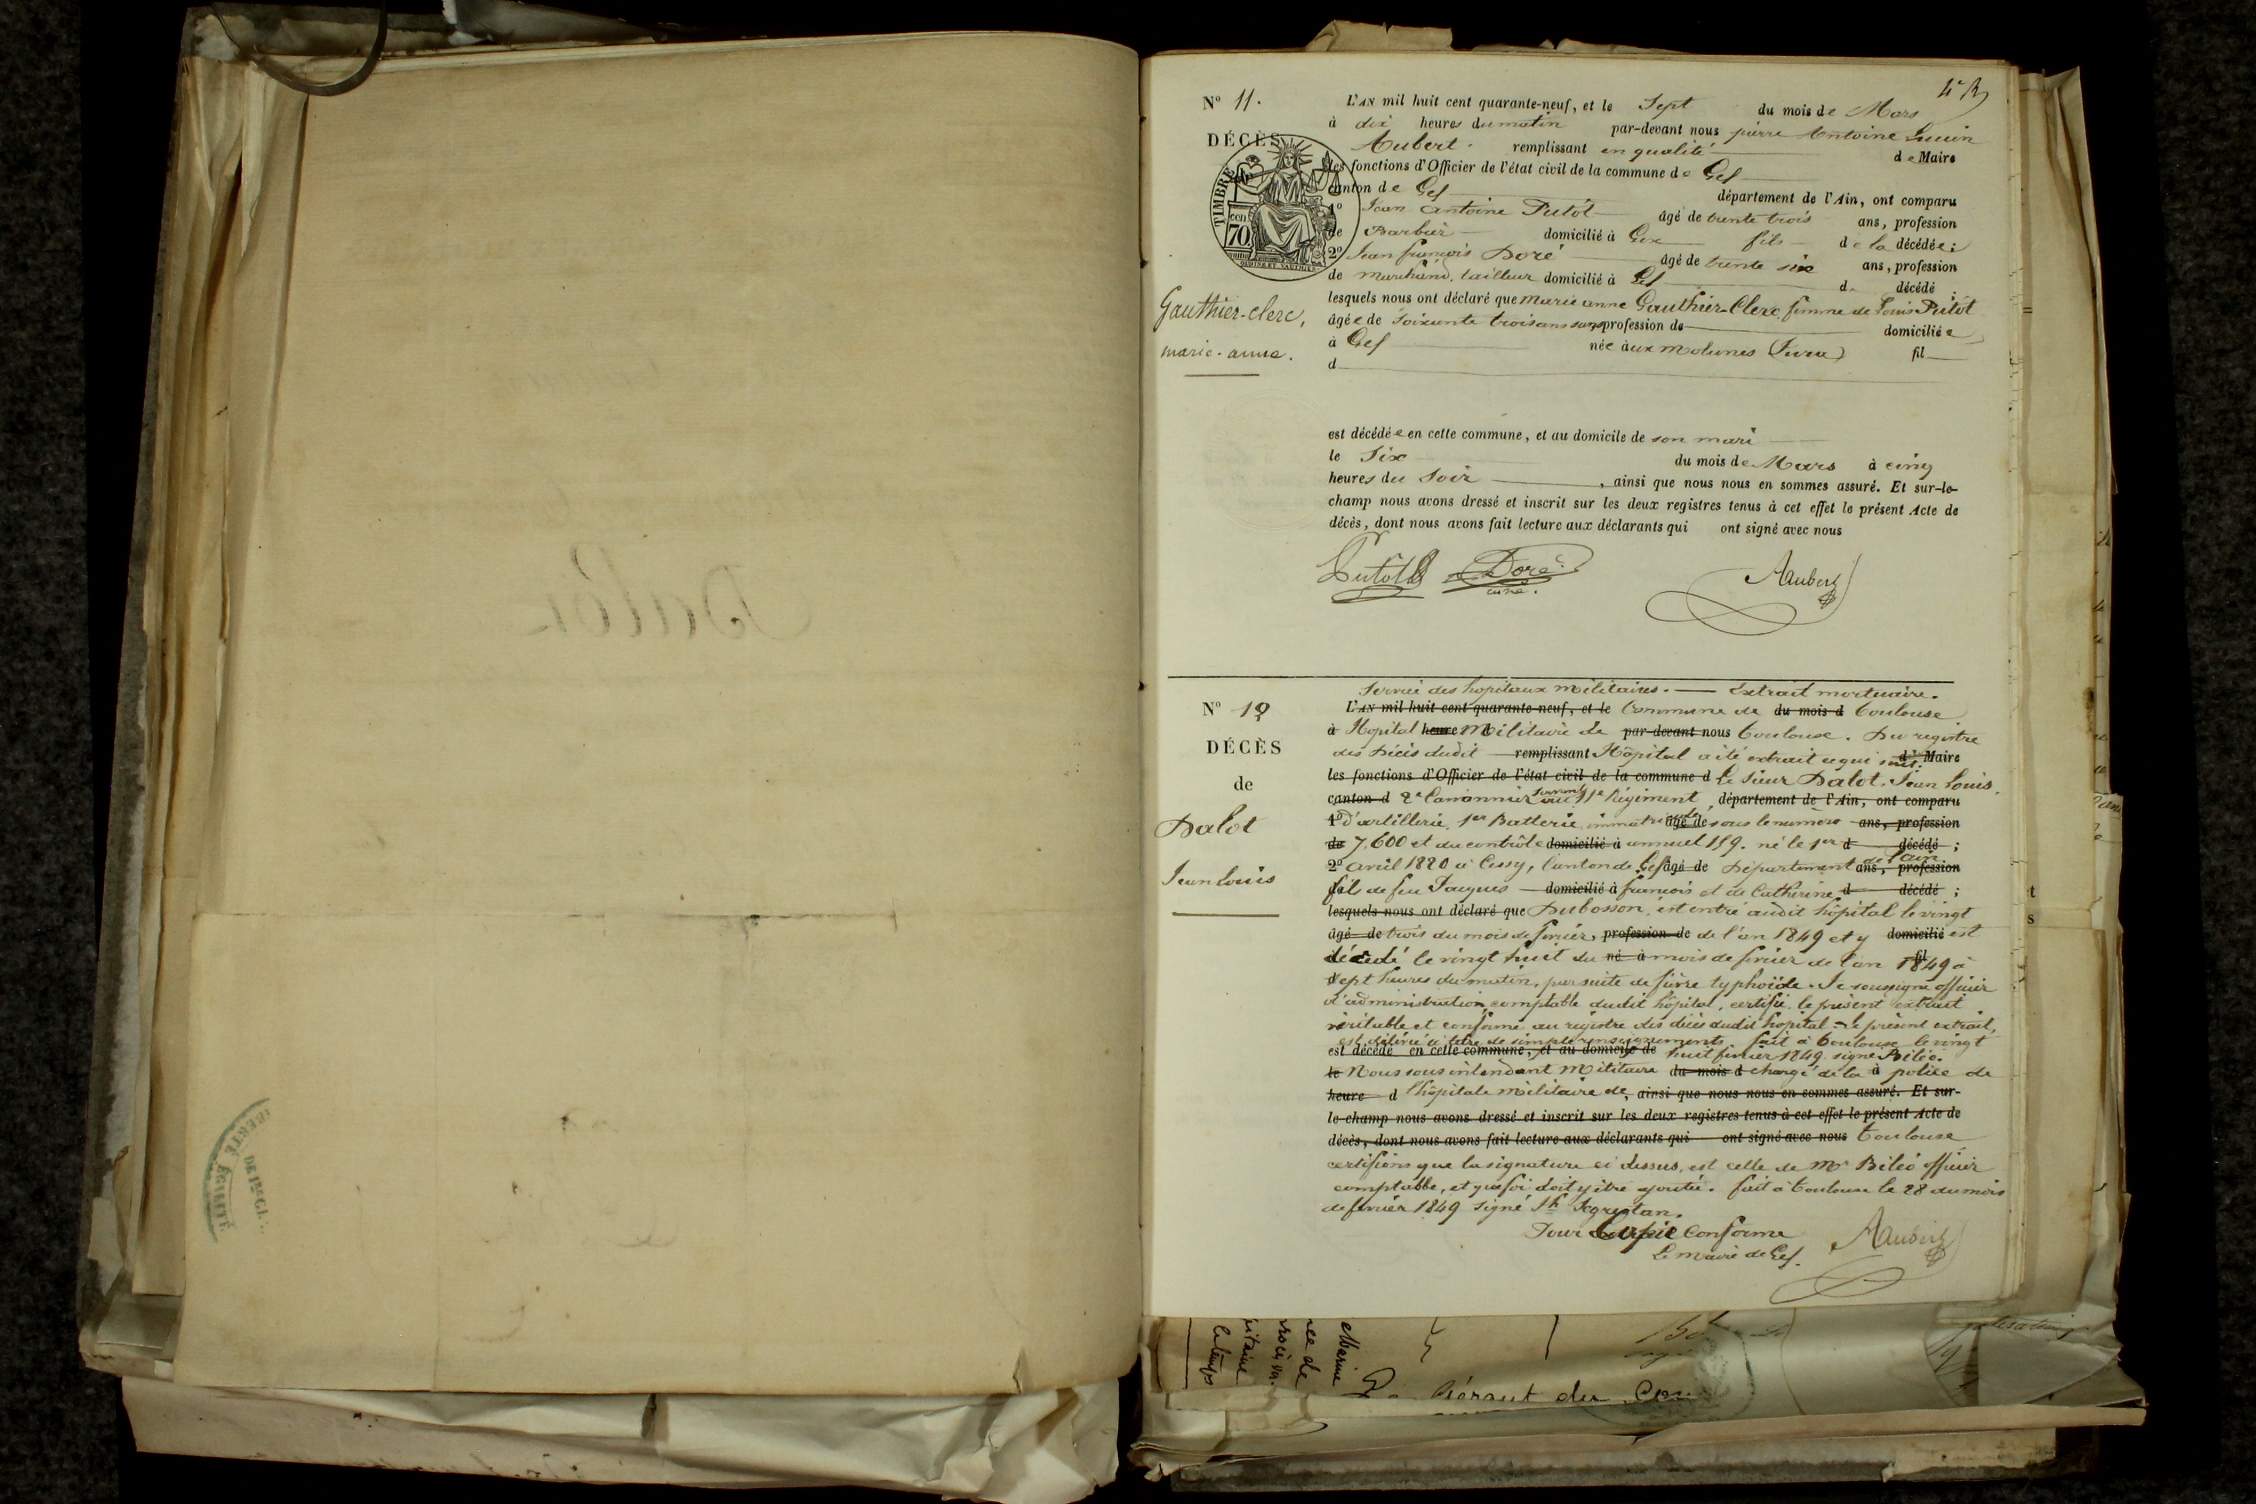 4e R
N° 11.
DÉCÈS
TIMBRE
cen
70
Gauthier-clerc,
marie-anne.
L'AN mil huit cent quarante-neuf, et le Sept du mois de Mars
à dix heures du matin par-devant nous pierre Antoine
Aubert. remplissant en qualité de Maire
les fonctions d'Officier de l'état civil de la commune de Gex
canton de Gex département de l'Ain, ont comparu
1° Jean antoine Putôt âgé de trente trois ans, profession
de Barbier domicilié à Gex fils de la décédée;
2° Jean françois Doré âgé de trente six ans, profession
de marchand tailleur domicilié à Gex d décédé ;
lesquels nous ont déclaré que marie anne Gauthier-Clerc, femme de Louis Putôt
âgée de Soixante trois ans sans profession de domiciliée
à Gex née aux molunes (Jura) fil
d
est décédée en cette commune, et au domicile de son mari
le Six du mois de Mars à cinq
heures du Soir , ainsi que nous nous en sommes assuré. Et sur-le-
champ nous avons dressé et inscrit sur les deux registres tenus à cet effet le présent Acte de
décès, dont nous avons fait lecture aux déclarants qui ont signé avec nous
Putot Doré Aubert
N° 12
DÉCÈS
de
Dalot
Jean Louis
Service des hopitaux militaires. — Extrait mortuaire.
L'AN mil huit cent quarante-neuf, et le Commune de du mois d Toulouse
à Hopital heure Militaire de par-devant nous Toulouse. Du registre
des Décès dudit remplissant Hôpital a été extrait ce qui suit. d Maire
les fonctions d'Officier de l'état civil de la commune d Le Sieur Dalot, Jean Louis,
canton d 2e Canonnier servant au 11e Régiment département de l'Ain, ont comparu
1° d'artillerie, 1er Batterie immatriculé âgé de sous le numéro ans, profession
de 7,600 et du contrôle domicilié à annuel 159. né le 1er d décédé ;
2° avril 1820 à Cessy, Canton de Gex âgé de Département de l'ain ans, profession
fils de feu Jacques domicilié à françois et de Catherine d décédé ;
lesquels nous ont déclaré que Dubosson, est entré audit hôpital le vingt
âgé de trois du mois de février profession de de l'an 1849 et y domicilié est
décédé le vingt huit du né à mois de février de l'an fil 1849 à
Sept heures du matin, par suite de fièvre typhoïde. Je soussigné officier
d'administration comptable dudit hôpital, certifie le présent extrait
véritable et conforme au registre des décès dudit hôpital = le présent extrait,
est délivré à titre de simple renseignements. fait à Toulouse le vingt
est décédé en cette commune, et au domicile de huit février 1849. signé Biléo.
le Nous sous intendant Militaire du mois d chargé de la à police de
heure d l'hôpitale militaire de, ainsi que nous nous en sommes assuré. Et sur-
le-champ nous avons dressé et inscrit sur les deux registres tenus à cet effet le présent Acte de
décès, dont nous avons fait lecture aux déclarants qui ont signé avec nous Toulouse
certifions que la signature ci dessus, est celle de Mr Biléo officier
comptable, et que foi doit y être ajoutée. fait à Toulouse le 28 du mois
de février 1849 signé Segretan.
Pour Copie Conforme
Le maire de Gex.
Aubert